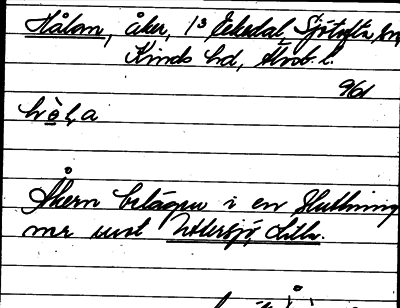 Hålan, åker, 1³ Ekedal, Sjötofta sn,
Kinds hd, Älvsb. l.
Åkern belägen i en sluttning
ner mot Uttersjö, Lilla.